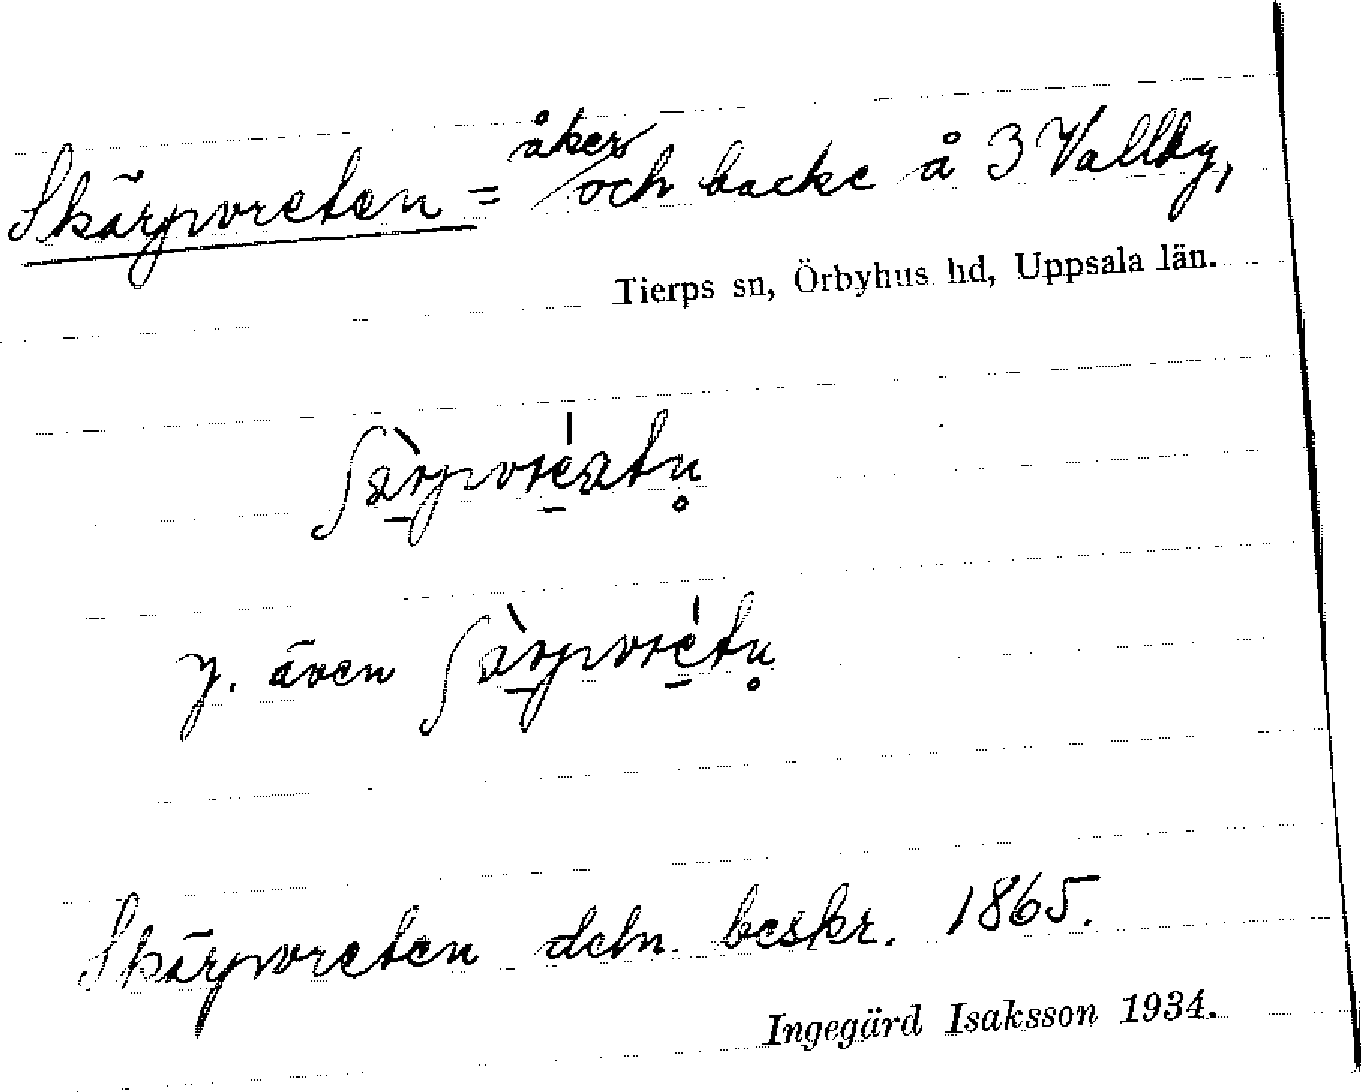 Skärpvreten = åker och backe å 3 Vallby,
Tierps sn, Örbyhus hd, Uppsala län.
y. även
Skärpvreten deln. beskr. 1865.
Ingegärd Isaksson 1934.